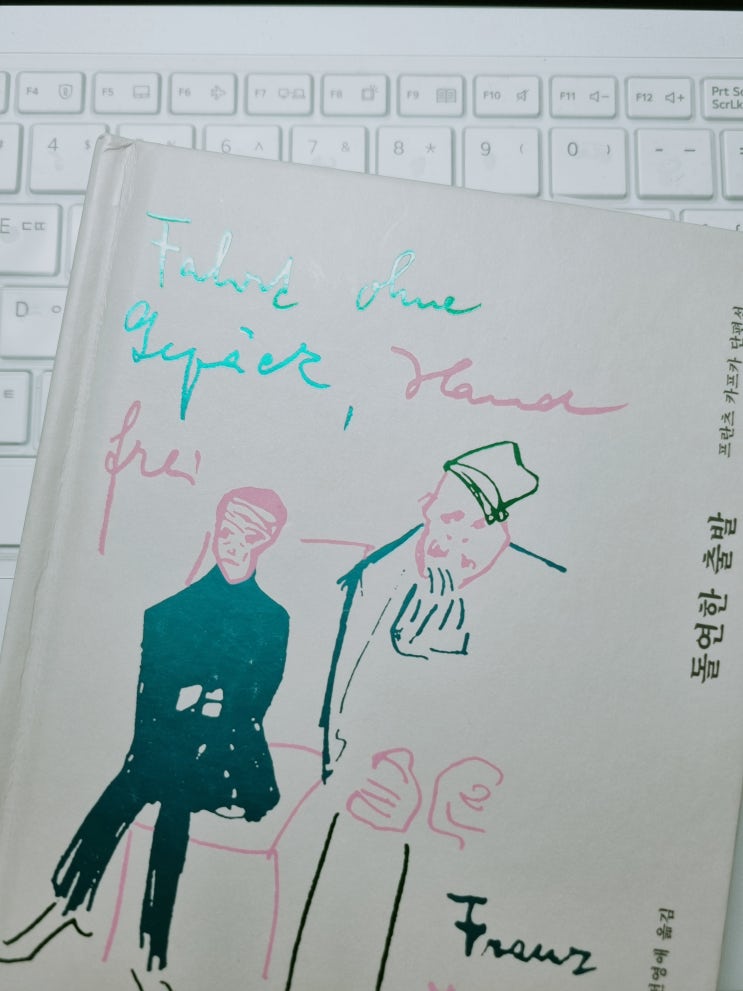 F4 F5 F6 F7 F8 F9 F10 F11 F12 Prt Sc
ScrLk
4 6 ^ 7 & 8 * 9 ( 0 ) - _
E ㄸ ㄷ
D ㅇ
Fahrt ohne
Gepäck, Hand
frei
프란츠 카프카 단편선
돌연한 출발
전영애 옮김
Franz